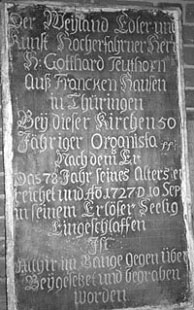 Der Weyland Edler und
Kunst Hocherfahrner Herr
H: Gotthard Teuthorn
Auß Francken Hausen
in Thüringen
Bey dieser Kirchen 50
Jähriger Organista
Nach dem Er
Das 78 Jahr seines Alters er
reichet und Aõ. 1727 D. 10 Sep
in seinem Erlöser Seelig
Eingeschlaffen
Ist
Allhir im Gange gegen über
Beÿgesetzet und begraben
worden